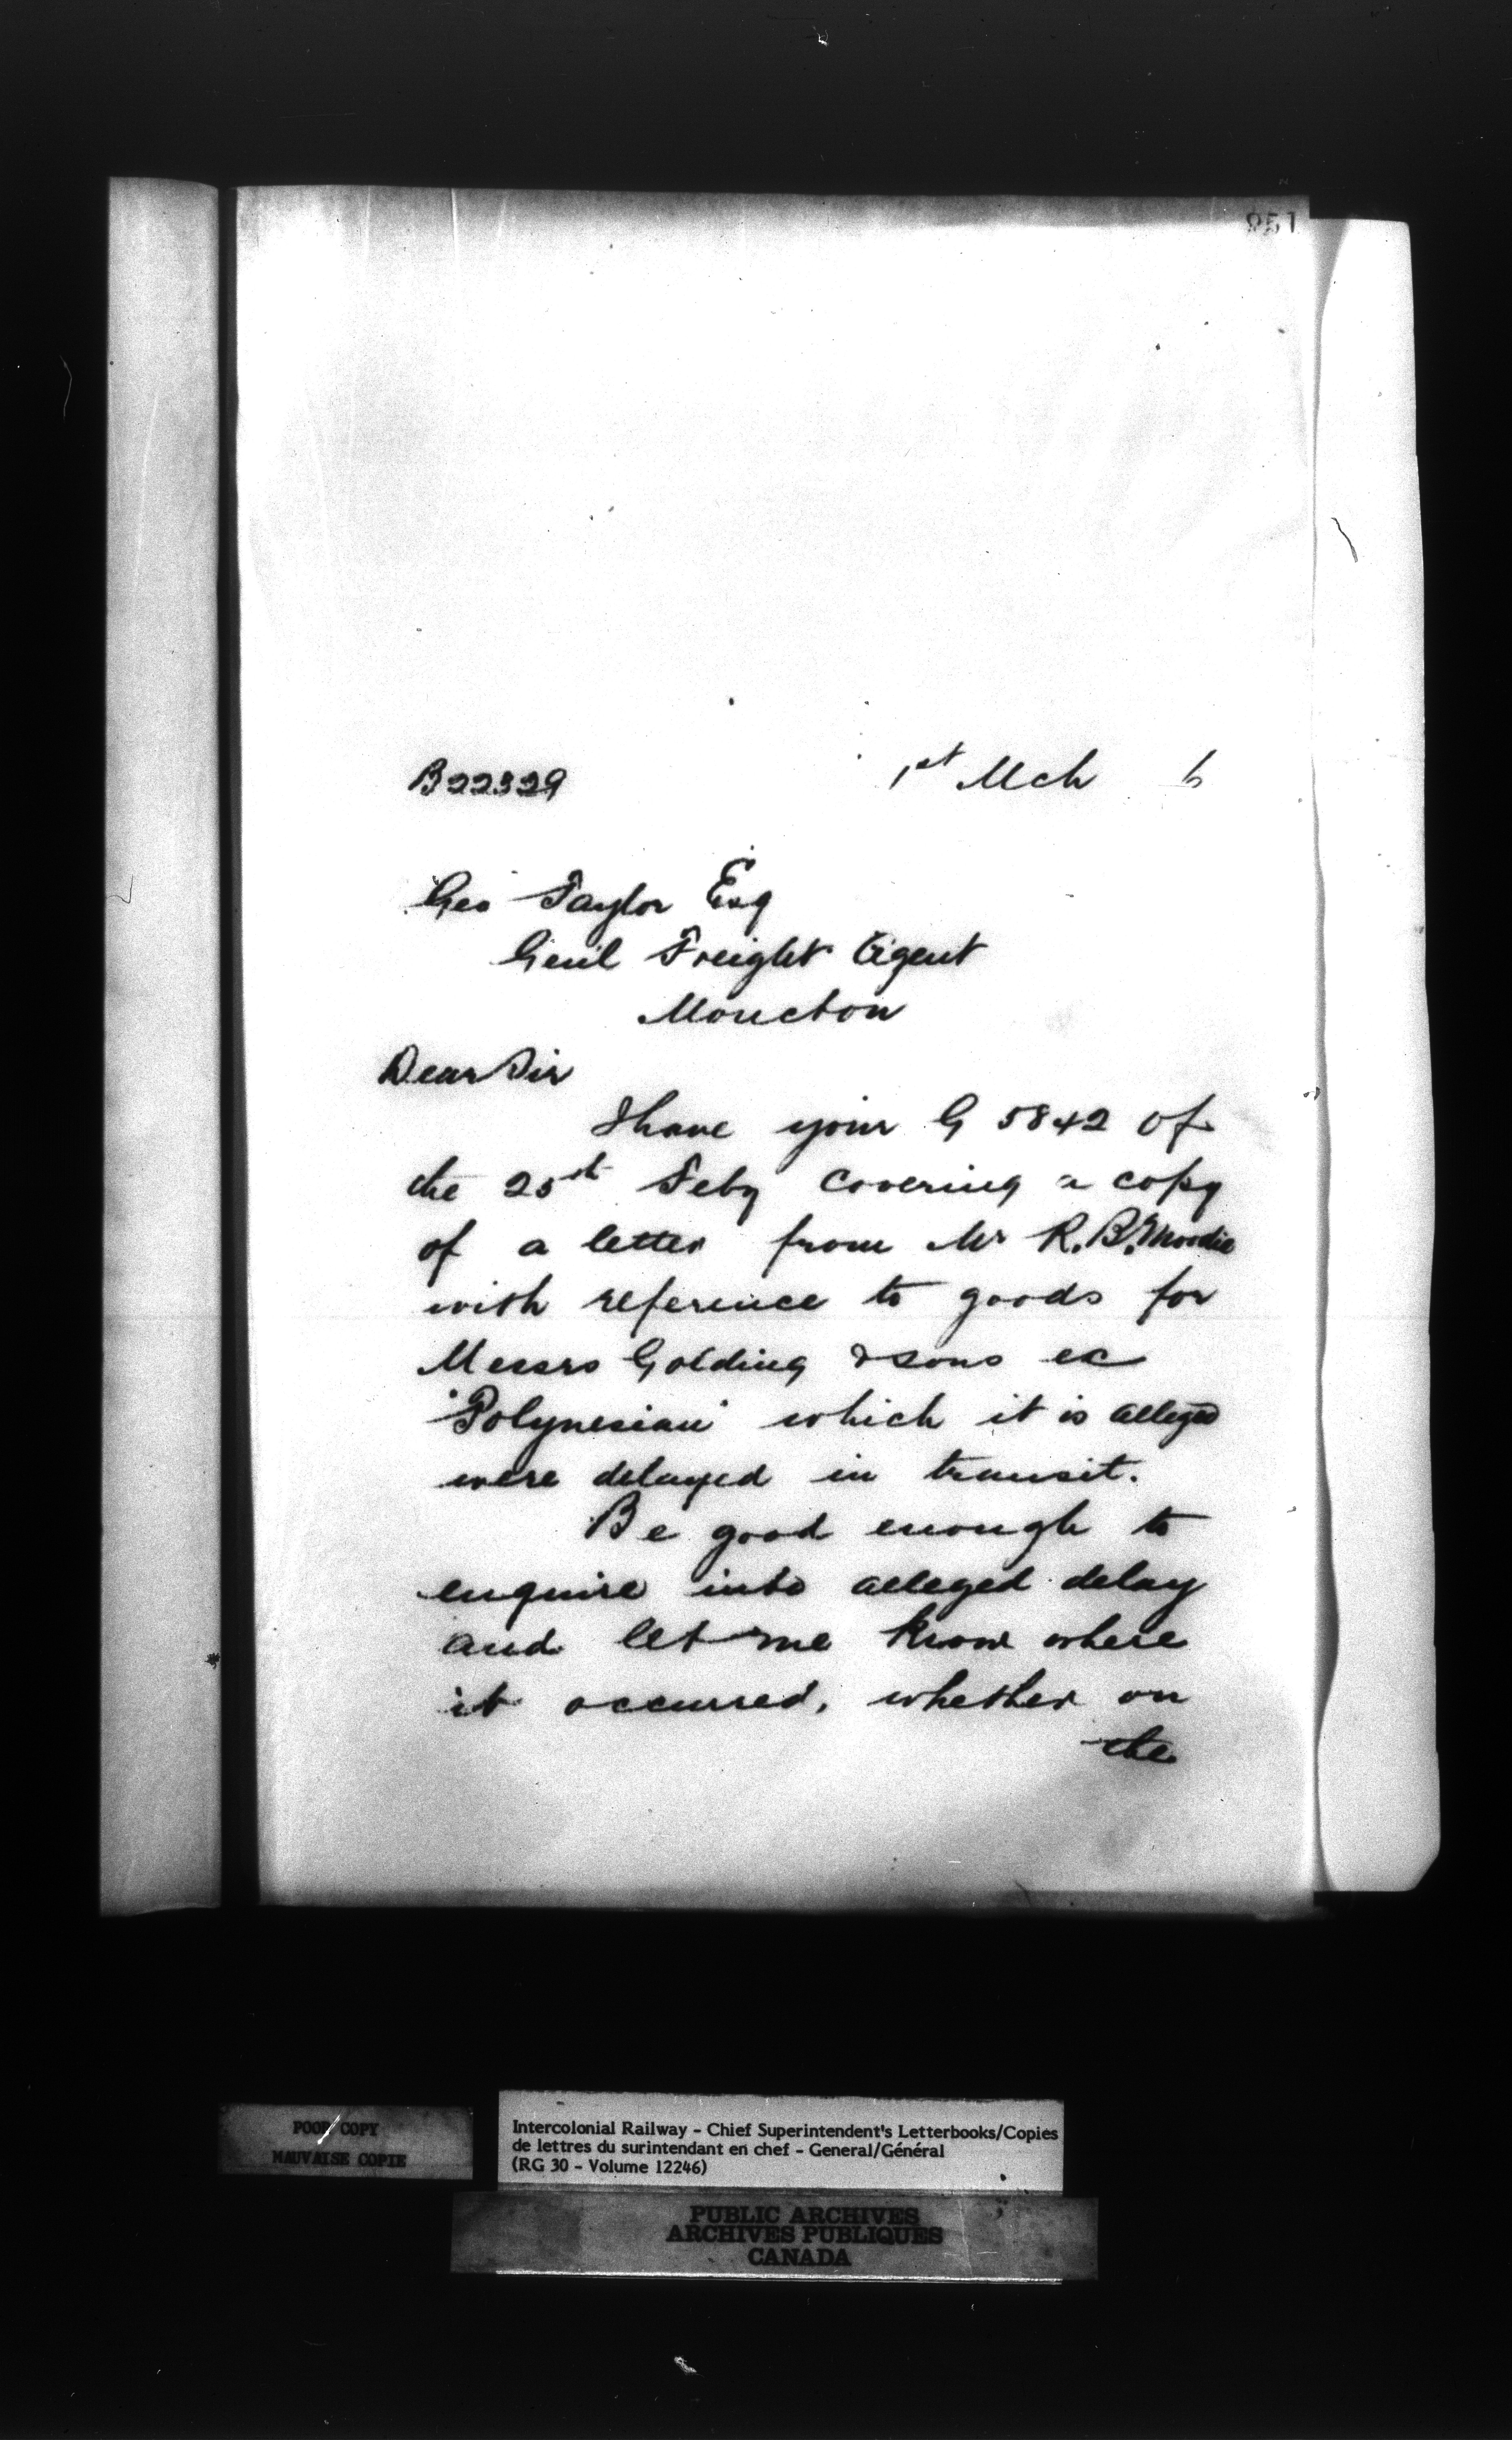 951
B22329 1st Mch 6
Geo Taylor Esq
Genl Freight Agent
Moncton
Dear Sir
I have your G 5842 of
the 25th Feby covering a copy
of a letter from Mr R. B. Moodie
with reference to goods for
Messrs Golding & sons ex
"Polynesian" which it is alleged
were delayed in transit.
Be good enough to
enquire into alleged delay
and let me know where
it occurred, whether on
the
POOR COPY
MAUVAISE COPIE
Intercolonial Railway - Chief Superintendent's Letterbooks/Copies
de lettres du surintendant en chef - General/Général
(RG 30 - Volume 12246)
PUBLIC ARCHIVES
ARCHIVES PUBLIQUES
CANADA